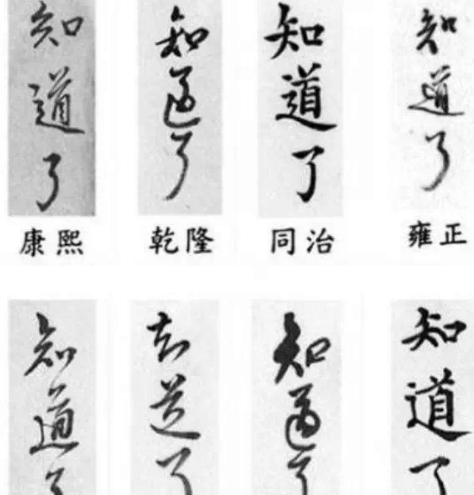 知道了
康熙
知道了
乾隆
知道了
同治
知道了
雍正
知道了
知道了
知道了
知道了